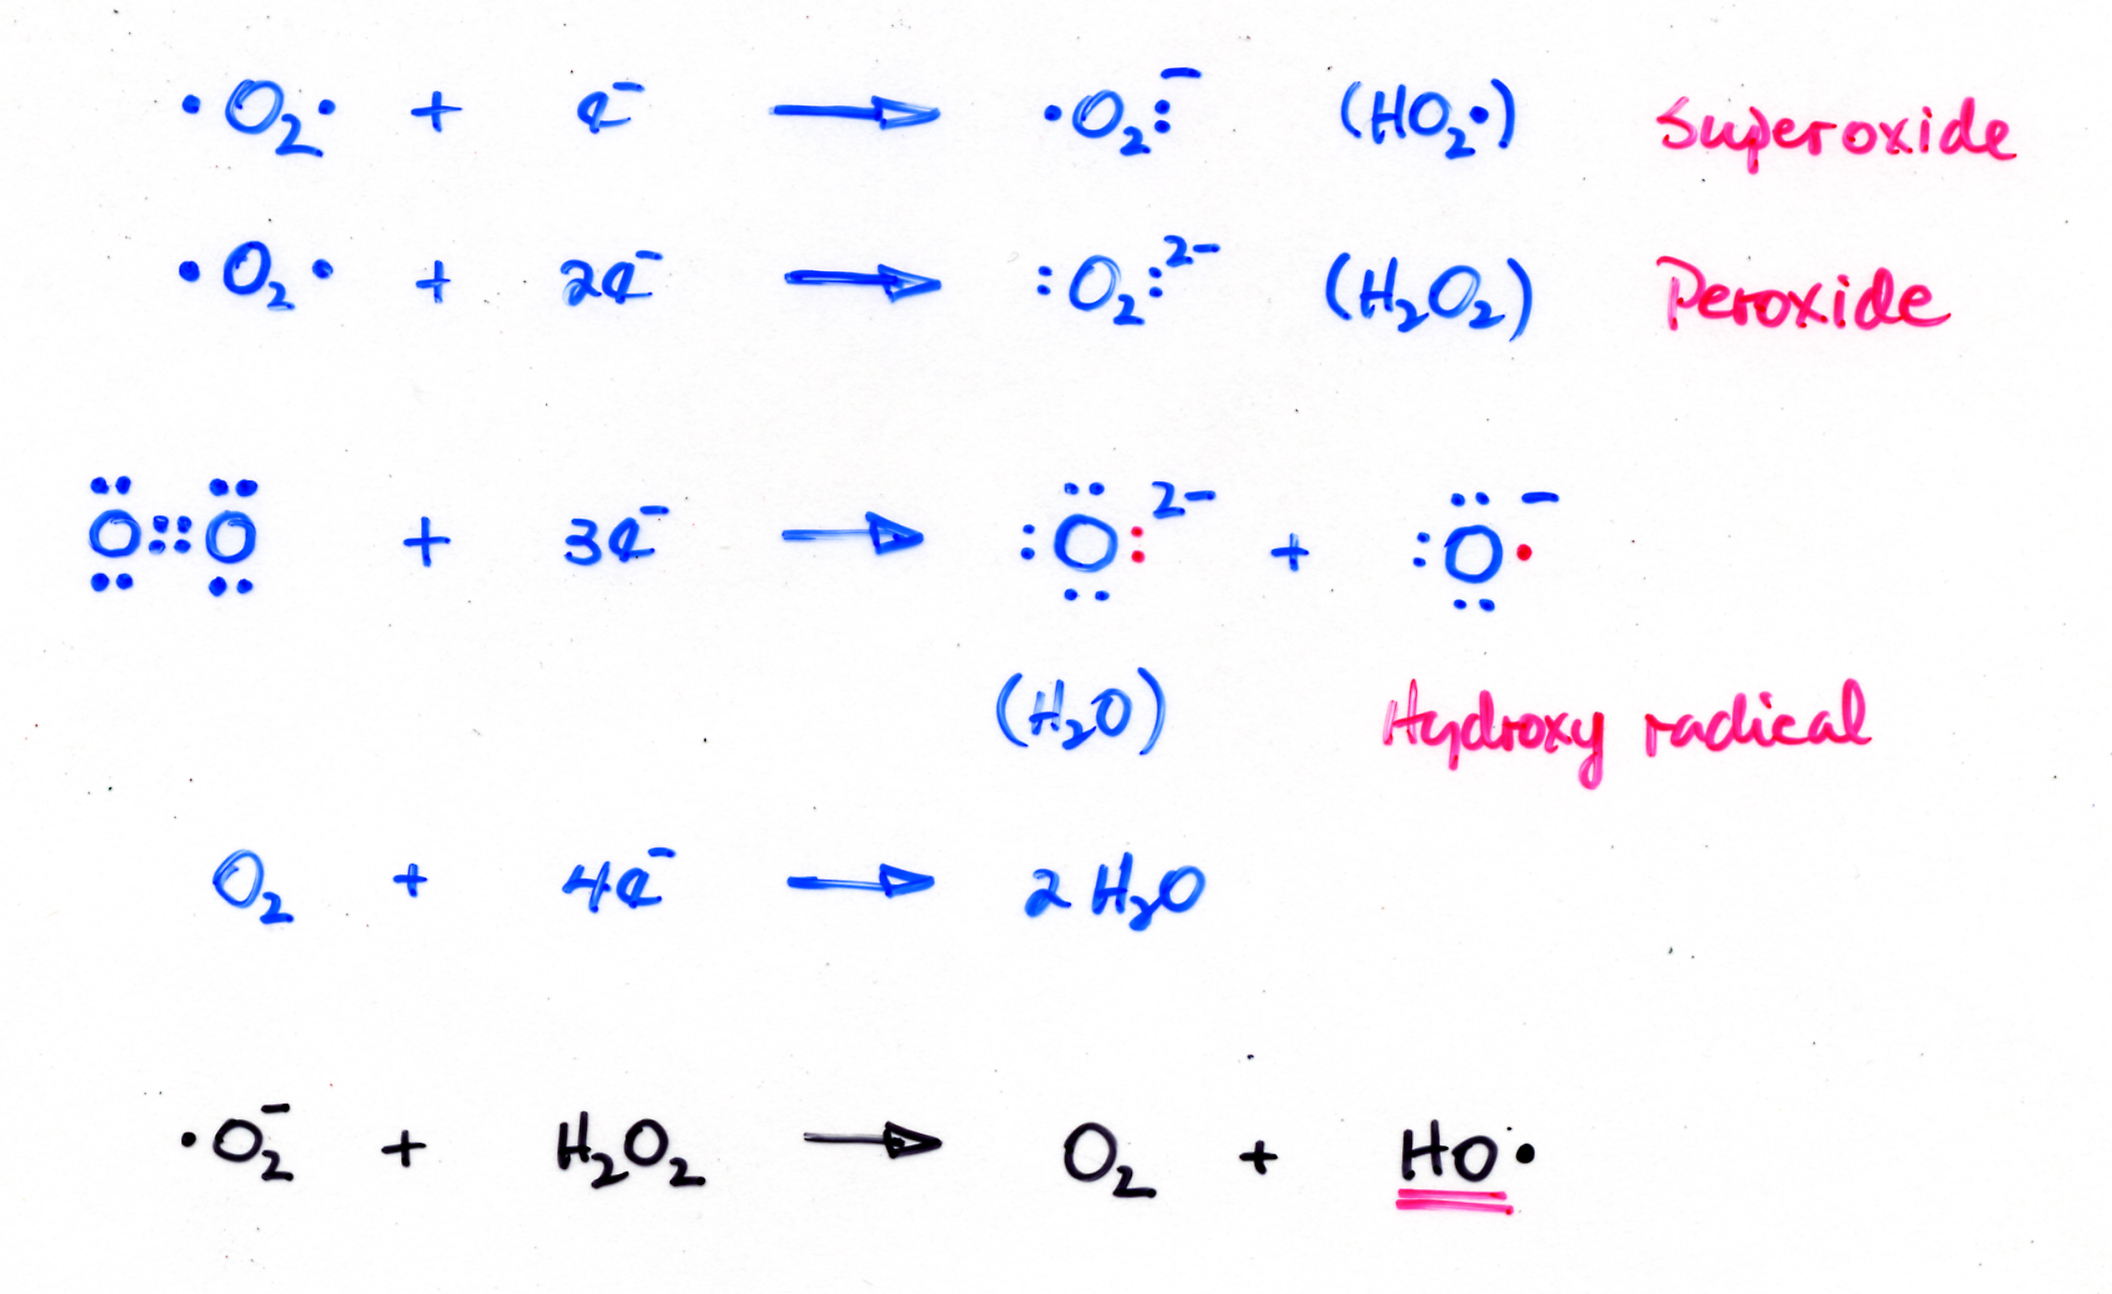 ·O₂· + e⁻ → ·O₂:⁻ (HO₂·) Superoxide
·O₂· + 2e⁻ → :O₂:²⁻ (H₂O₂) Peroxide
:Ö::Ö: + 3e⁻ → :Ö:²⁻ + :Ö·⁻
(H₂O) Hydroxy radical
O₂ + 4e⁻ → 2 H₂O
·O₂⁻ + H₂O₂ → O₂ + HO·